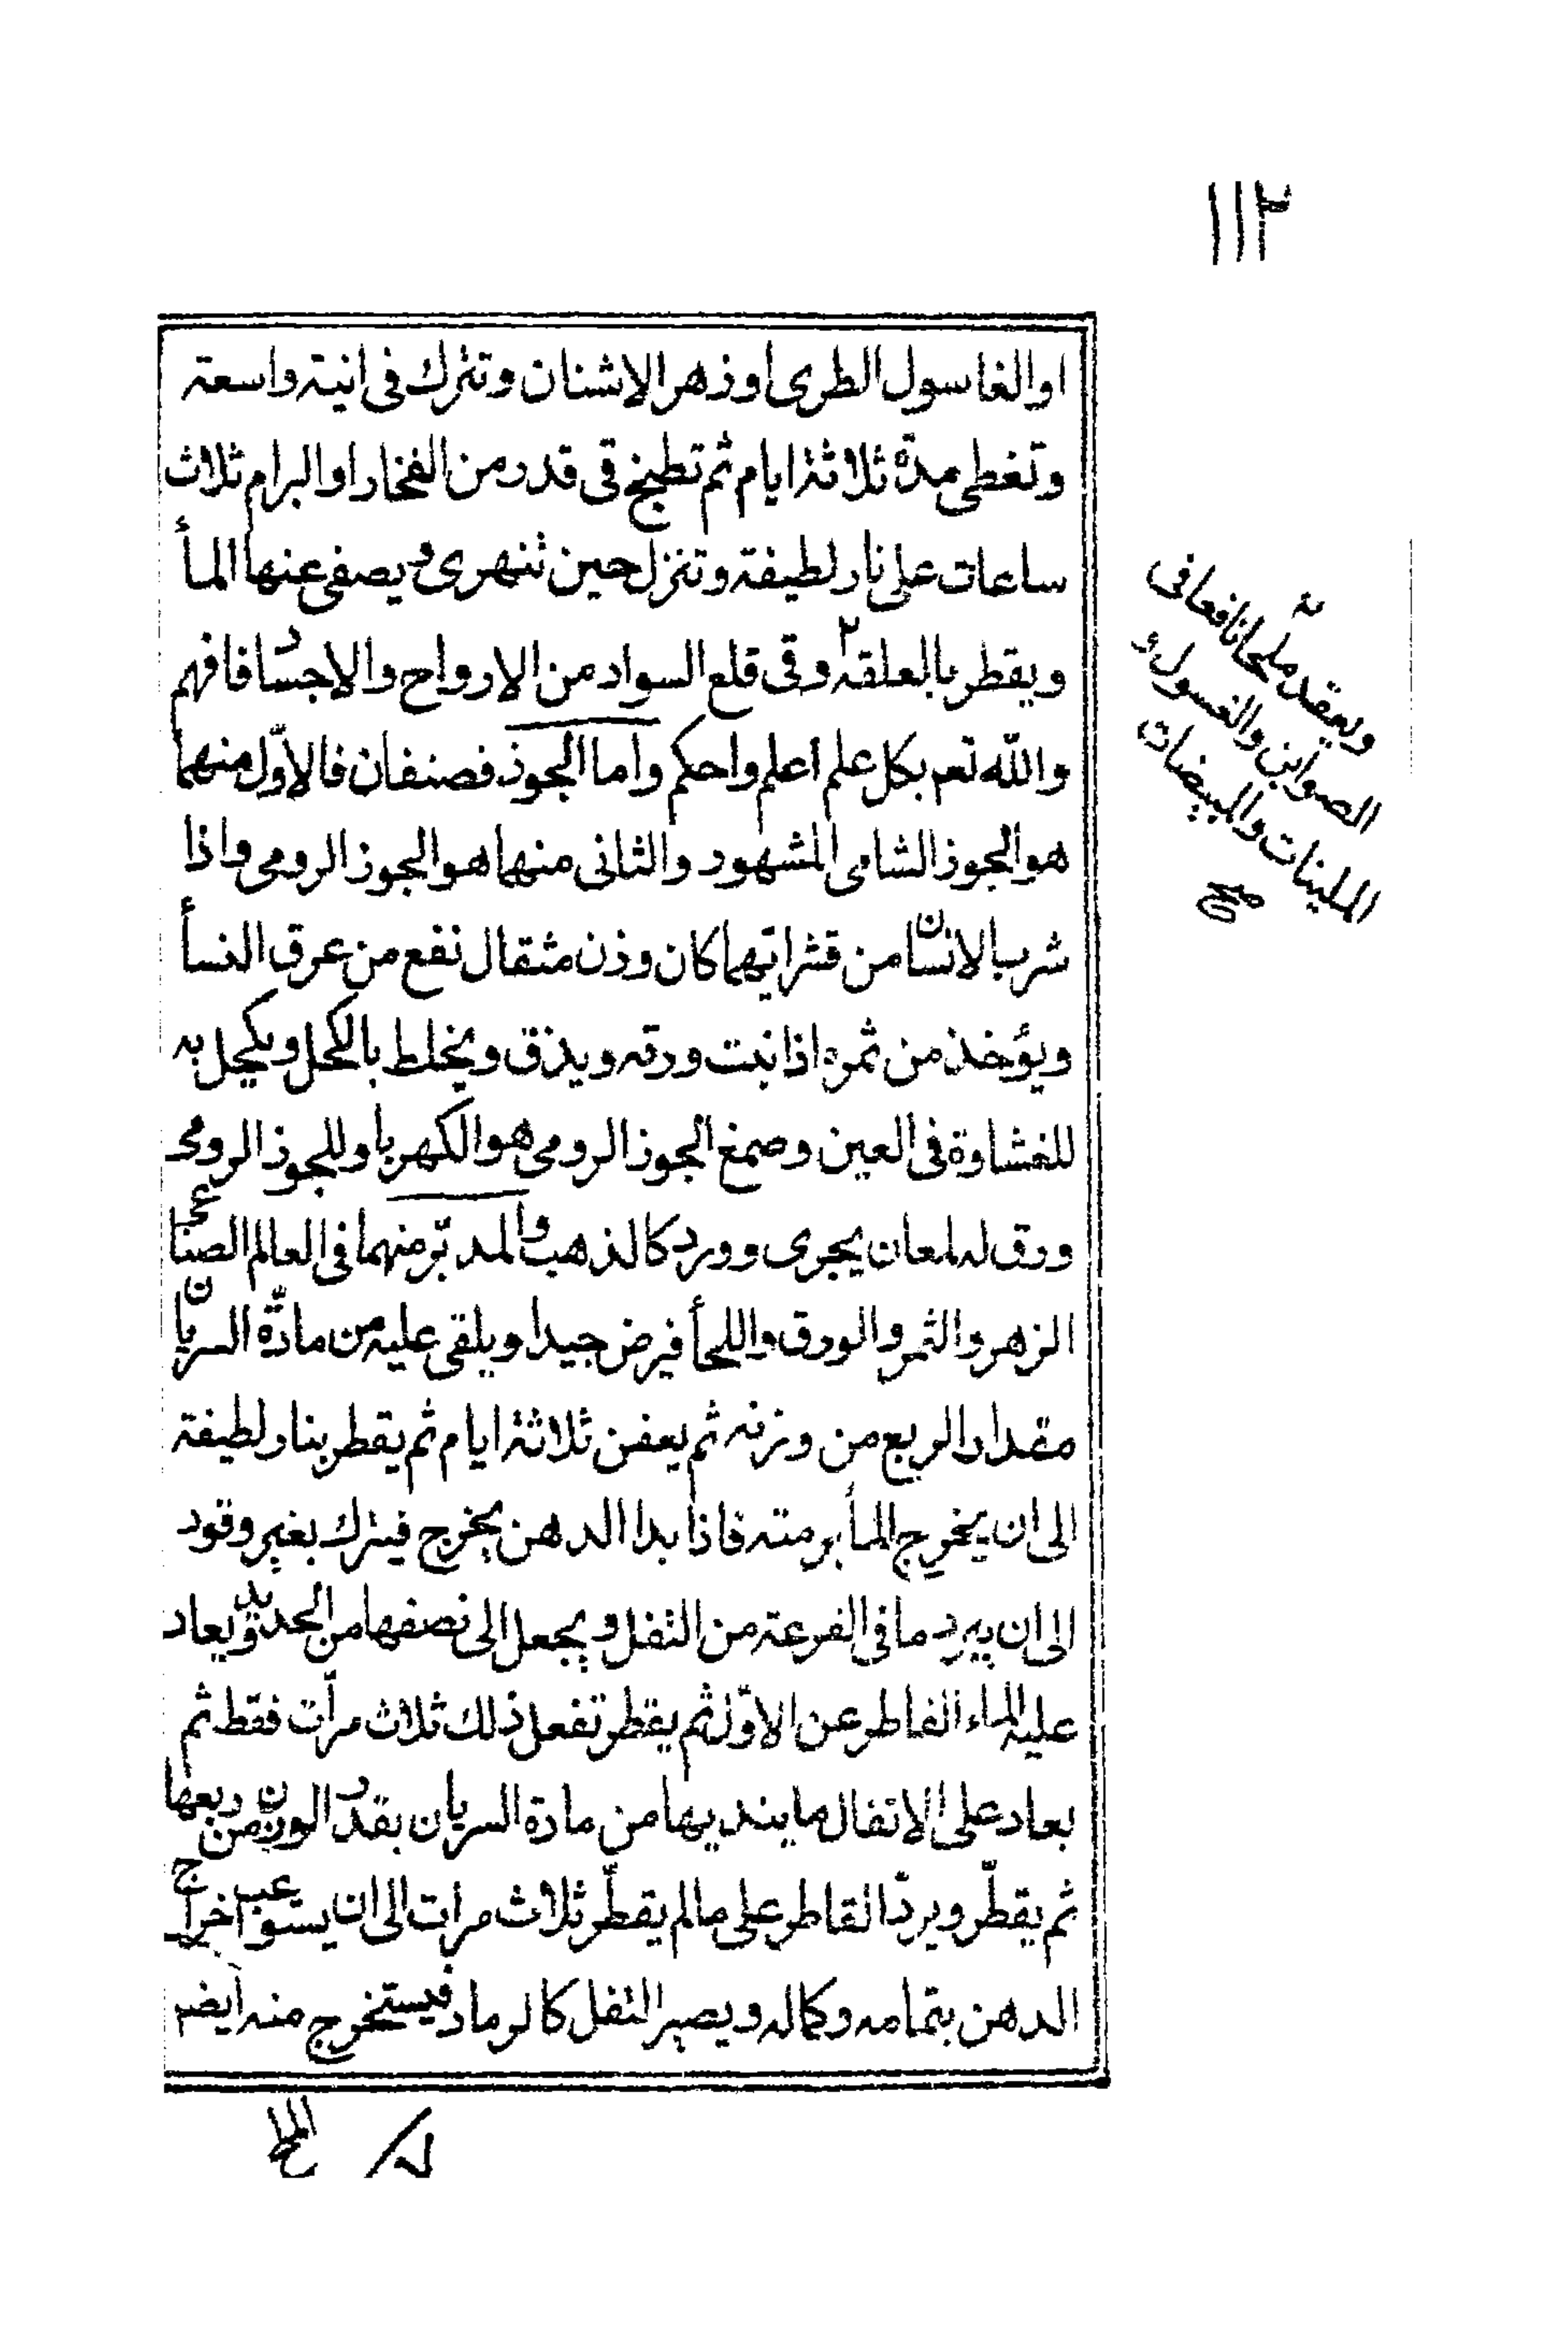 ١١٢
او الغاسول الطرى او زهر الاشنان وتترك فى انية واسعة
وتغطى مدة ثلاثة ايام ثم تطبخ فى قدر من الفخار او البرام ثلاث
ساعات على نار لطيفة وتنزل حين تنهرى ويصفى عنها المأ
ويقطر بالعلقة ٢ وفى قلع السواد من الارواح والاجساد فافهم
والله تعم بكل علم اعلم واحكم واما الجوز فصنفان فالاوّل منهما
هو الجوز الشامى المشهور والثانى منهما هو الجوز الرومى واذا
شرب الانسان من قشر ايهما كان وزن مثقال نفع من عرق النسأ
ويؤخذ من ثمره اذا نبت ورقه ويدق ويخلط بالكحل ويكحل به
للغشاوة فى العين وصمغ الجوز الرومى هو الكهربا وللجوز الرومى
ورق له لمعان يجرى وورد كالذهب والمدبّر منهما فى العالم الصناعى
الزهر والثمر والورق واللحأ فيرض جيدا ويلقى عليه من مادّة السريان
مقدار الربع من وزنه ثم يعفن ثلاثة ايام ثم يقطر بنار لطيفة
الى ان يخرج المأ برمته فاذا بدا الدهن يخرج فيترك بغير وقود
الى ان يبرد ما فى القرعة من الثفل ويجعل الى نصفها من الجديد ويعاد
عليه الماء القاطر عن الاوّل ثم يقطر تفعل ذلك ثلاث مرّات فقط ثم
يعاد على الاتفال ما ينديها من مادة السريان بقدر الوزن من ربعها
ثم يقطّر ويردّ القاطر على ما لم يقطّر ثلاث مرات الى ان يستوعب اخراج
الدهن بتمامه وكماله ويصير الثفل كالرماد فيستخرج منه ايضم
الملح
ويعقد ملحا نافعا فى
الصوابن والغسول و
الملينات والمبيضات
صح